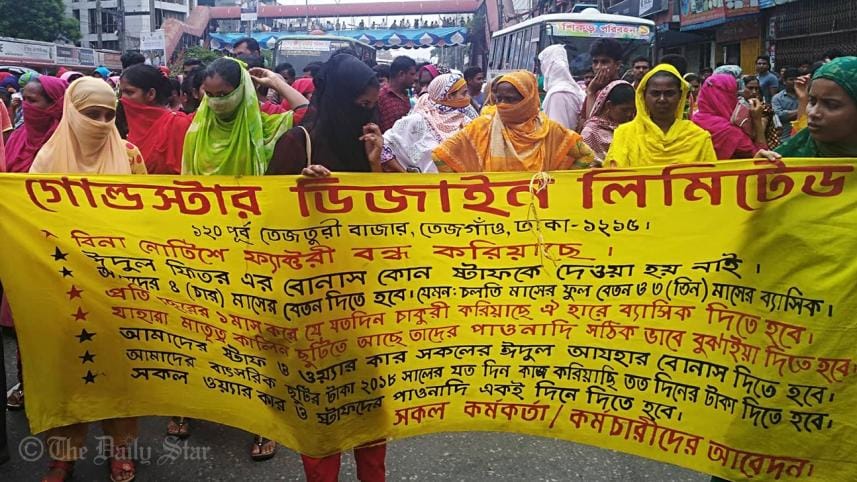 শিকড় পরিবহন
গোল্ডস্টার ডিজাইন লিমিটেড
১২০ পূর্ব তেজতুরী বাজার, তেজগাঁও, ঢাকা-১২১৫।
বিনা নোটিশে ফ্যাক্টরী বন্ধ করিয়াছে।
★ ঈদুল ফিতর এর বোনাস কোন স্টাফকে দেওয়া হয় নাই।
★ দের ৪ (চার) মাসের বেতন দিতে হবে। যেমন: চলতি মাসের ফুল বেতন ও ৩ (তিন) মাসের ব্যাসিক।
★ প্রতি বছরের ১ মাস করে যে যতদিন চাকুরী করিয়াছে ঐ হারে ব্যাসিক দিতে হবে।
★ যাহারা মাতৃত্ব কালিন ছুটিতে আছে তাদের পাওনাদি সঠিক ভাবে বুঝাইয়া দিতে হবে।
★ আমাদের স্টাফ ও ওয়্যার কার সকলের ঈদুল আযহার বোনাস দিতে হবে।
★ আমাদের বাৎসরিক ছুটির টাকা ২০১৮ সালের যত দিন কাজ করিয়াছি তত দিনের টাকা দিতে হবে।
★ সকল ওয়্যার কার ও স্টাফদের পাওনাদি একই দিনে দিতে হবে।
সকল কর্মকর্তা / কর্মচারীদের আবেদন।
© The Daily Star